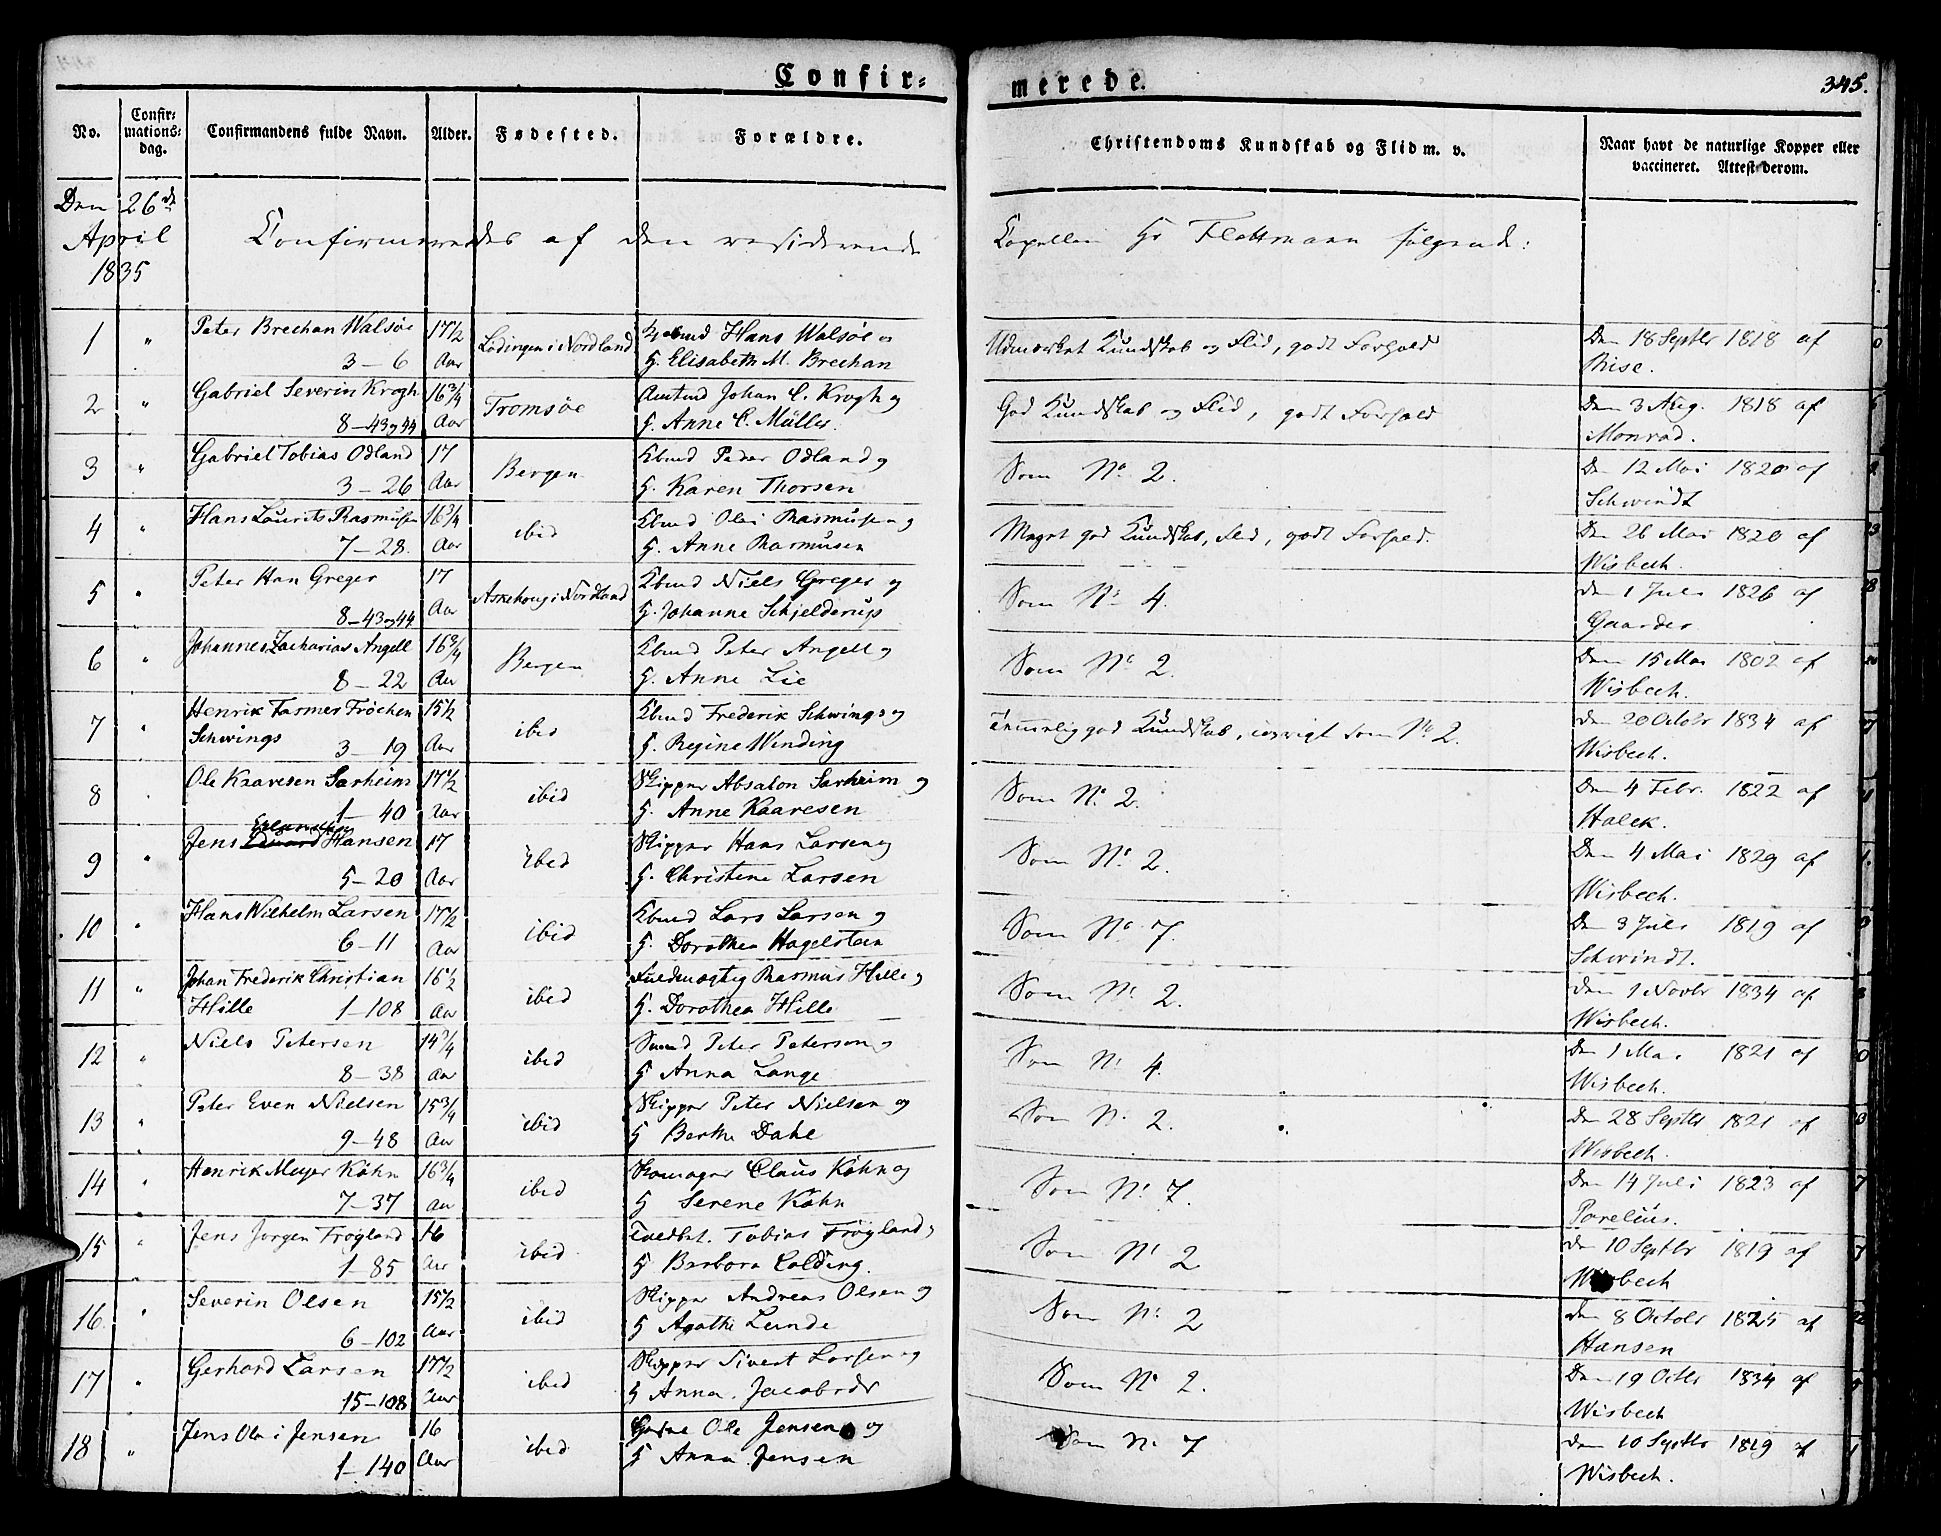 Confir= merede. 345.
No. Confir= mations= dag. Confirmandens fulde Navn. Alder. Fødested. Forældre. Christendoms Kundskab og Flid m. v. Naar havt de naturlige Kopper eller vaccineret. Attest derom.
Den 26de April 1835 Confirmeredes af den residerende Capellan Hr Flottmann følgende:
1 " Peter Brechan Walsøe 17½ Lødingen i Nordland Hans Walsøe og Udmærket Kundskab og Flid, godt Forhold Den 18 Septbr 1818 af
3 – 6 Aar H. Elisabeth M. Brechan Brise.
2 " Gabriel Severin Krogh 16¾ Tromsøe Amtmd Johan C. Krogh og God Kundskab og Flid, godt Forhold Den 3 Aug. 1818 af
8 – 43 og 44 Aar H. Anne C. Müller. Monrad.
3 " Gabriel Tobias Odland 17 Bergen Kbmd Peder Odland og Som No 2. Den 12 Mai 1820 af
3 – 26 Aar H. Karen Thorsen Schwindt
4 " Hans Laurits Rasmusen 16¾ ibid Kbmd Ole Rasmusen og Meget god Kundskab, Flid, godt Forhold. Den 26 Mai 1820 af
7 – 28. Aar H. Anne Rasmusen Wisbech.
5 " Peter Han Greger 17 Askehoug i Nordland Kbmd Niels Greger og Som No 4. Den 1 Juli 1826 af
8 – 43 og 44 Aar H. Johanne Schjelderup Gaarder
6 " Johannes Zacharias Angell 16¾ Bergen Kbmd Peter Angell og Som No 2. Den 15 Mai 1802 af
8 – 22 Aar H. Anne Lie Wisbech.
7 " Henrik Farmer Frøchen 15½ ibid Kbmd Frederik Schwings og Temmelig god Kundskab, iøvrigt som No 2. Den 20 Octobr 1834 af
Schwings 3 – 19 Aar H. Regine Wending Wisbech.
8 . Ole Kaaresen Sarheim 17½ ibid Skipper Absalon Sarheim og Som No. 2. Den 4 Febr. 1822 af
1 – 40 Aar H. Anne Kaaresen Halck.
9 " Jens Hansen 17 ibid Skipper Hans Larsen og Som No. 2. Den 4 Mai 1829 af
5 – 20 Aar H. Christene Larsen Wisbech.
10 " Hans Wilhelm Larsen 17½ ibid Kbmd Lars Larsen og Som No. 7. Den 3 Juli 1819 af
6 – 11 Aar H. Dorothea Hagelsteen Schwindt.
11 " Johan Frederik Christian 16½ ibid Fuldmægtig Rasmus Hille og Som No. 2. Den 1 Novbr 1834 af
Hille 1 – 108 Aar H. Dorothea Hille Wisbech.
12 " Niels Petersen 14¾ ibid Peter Peterson og Som No 4. Den 1 Mai 1821 af
8 – 38 Aar H Anna Lange Wisbech.
13 " Peter Even Nielsen 15¾ ibid Skipper Peter Nielsen og Som No. 2. Den 28 Septbr 1821 af
9 – 48 Aar H Berthe Dahl Wisbech.
14 " Henrik Meyer Køhn 16¾ ibid Skomager Claus Køhn og Som No. 7. Den 14 Juli 1823 af
7 – 37 Aar H Serene Køhn Parelius.
15 " Jens Jørgen Frøyland 16 ibid Tobias Frøyland, Som No 2 Den 10 Septbr 1819 af
1 – 85 Aar H Barbora Colding. Wisbech
16. " Severin Olsen 15½ ibid Skipper Andreas Olsen og Som No. 2 Den 8 Octobr 1825 af
6 – 102 Aar H Agathe Lunde Hansen
17 " Gerhard Larsen 17½ ibid Skipper Sivert Larsen og Som No 2. Den 19 Octbr 1834 af
15 – 108 Aar H Anna Jacobsdr Wisbech
18 " Jens Olai Jensen 16 ibid Ole Jensen og Som No 7 Den 10 Septbr 1819 af
1 – 140 Aar H Anna Jensen Wisbech.